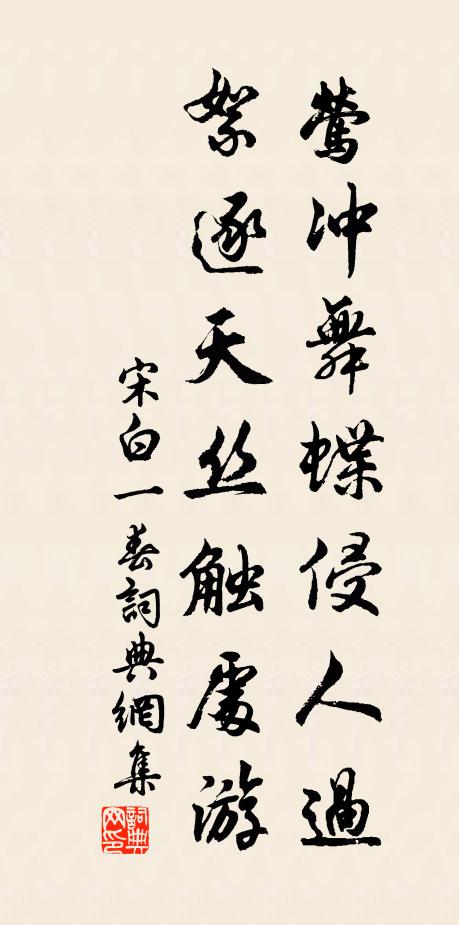 莺冲舞蝶侵人过
絮逐天丝触处游
宋白一春詞典網集
詞典网印